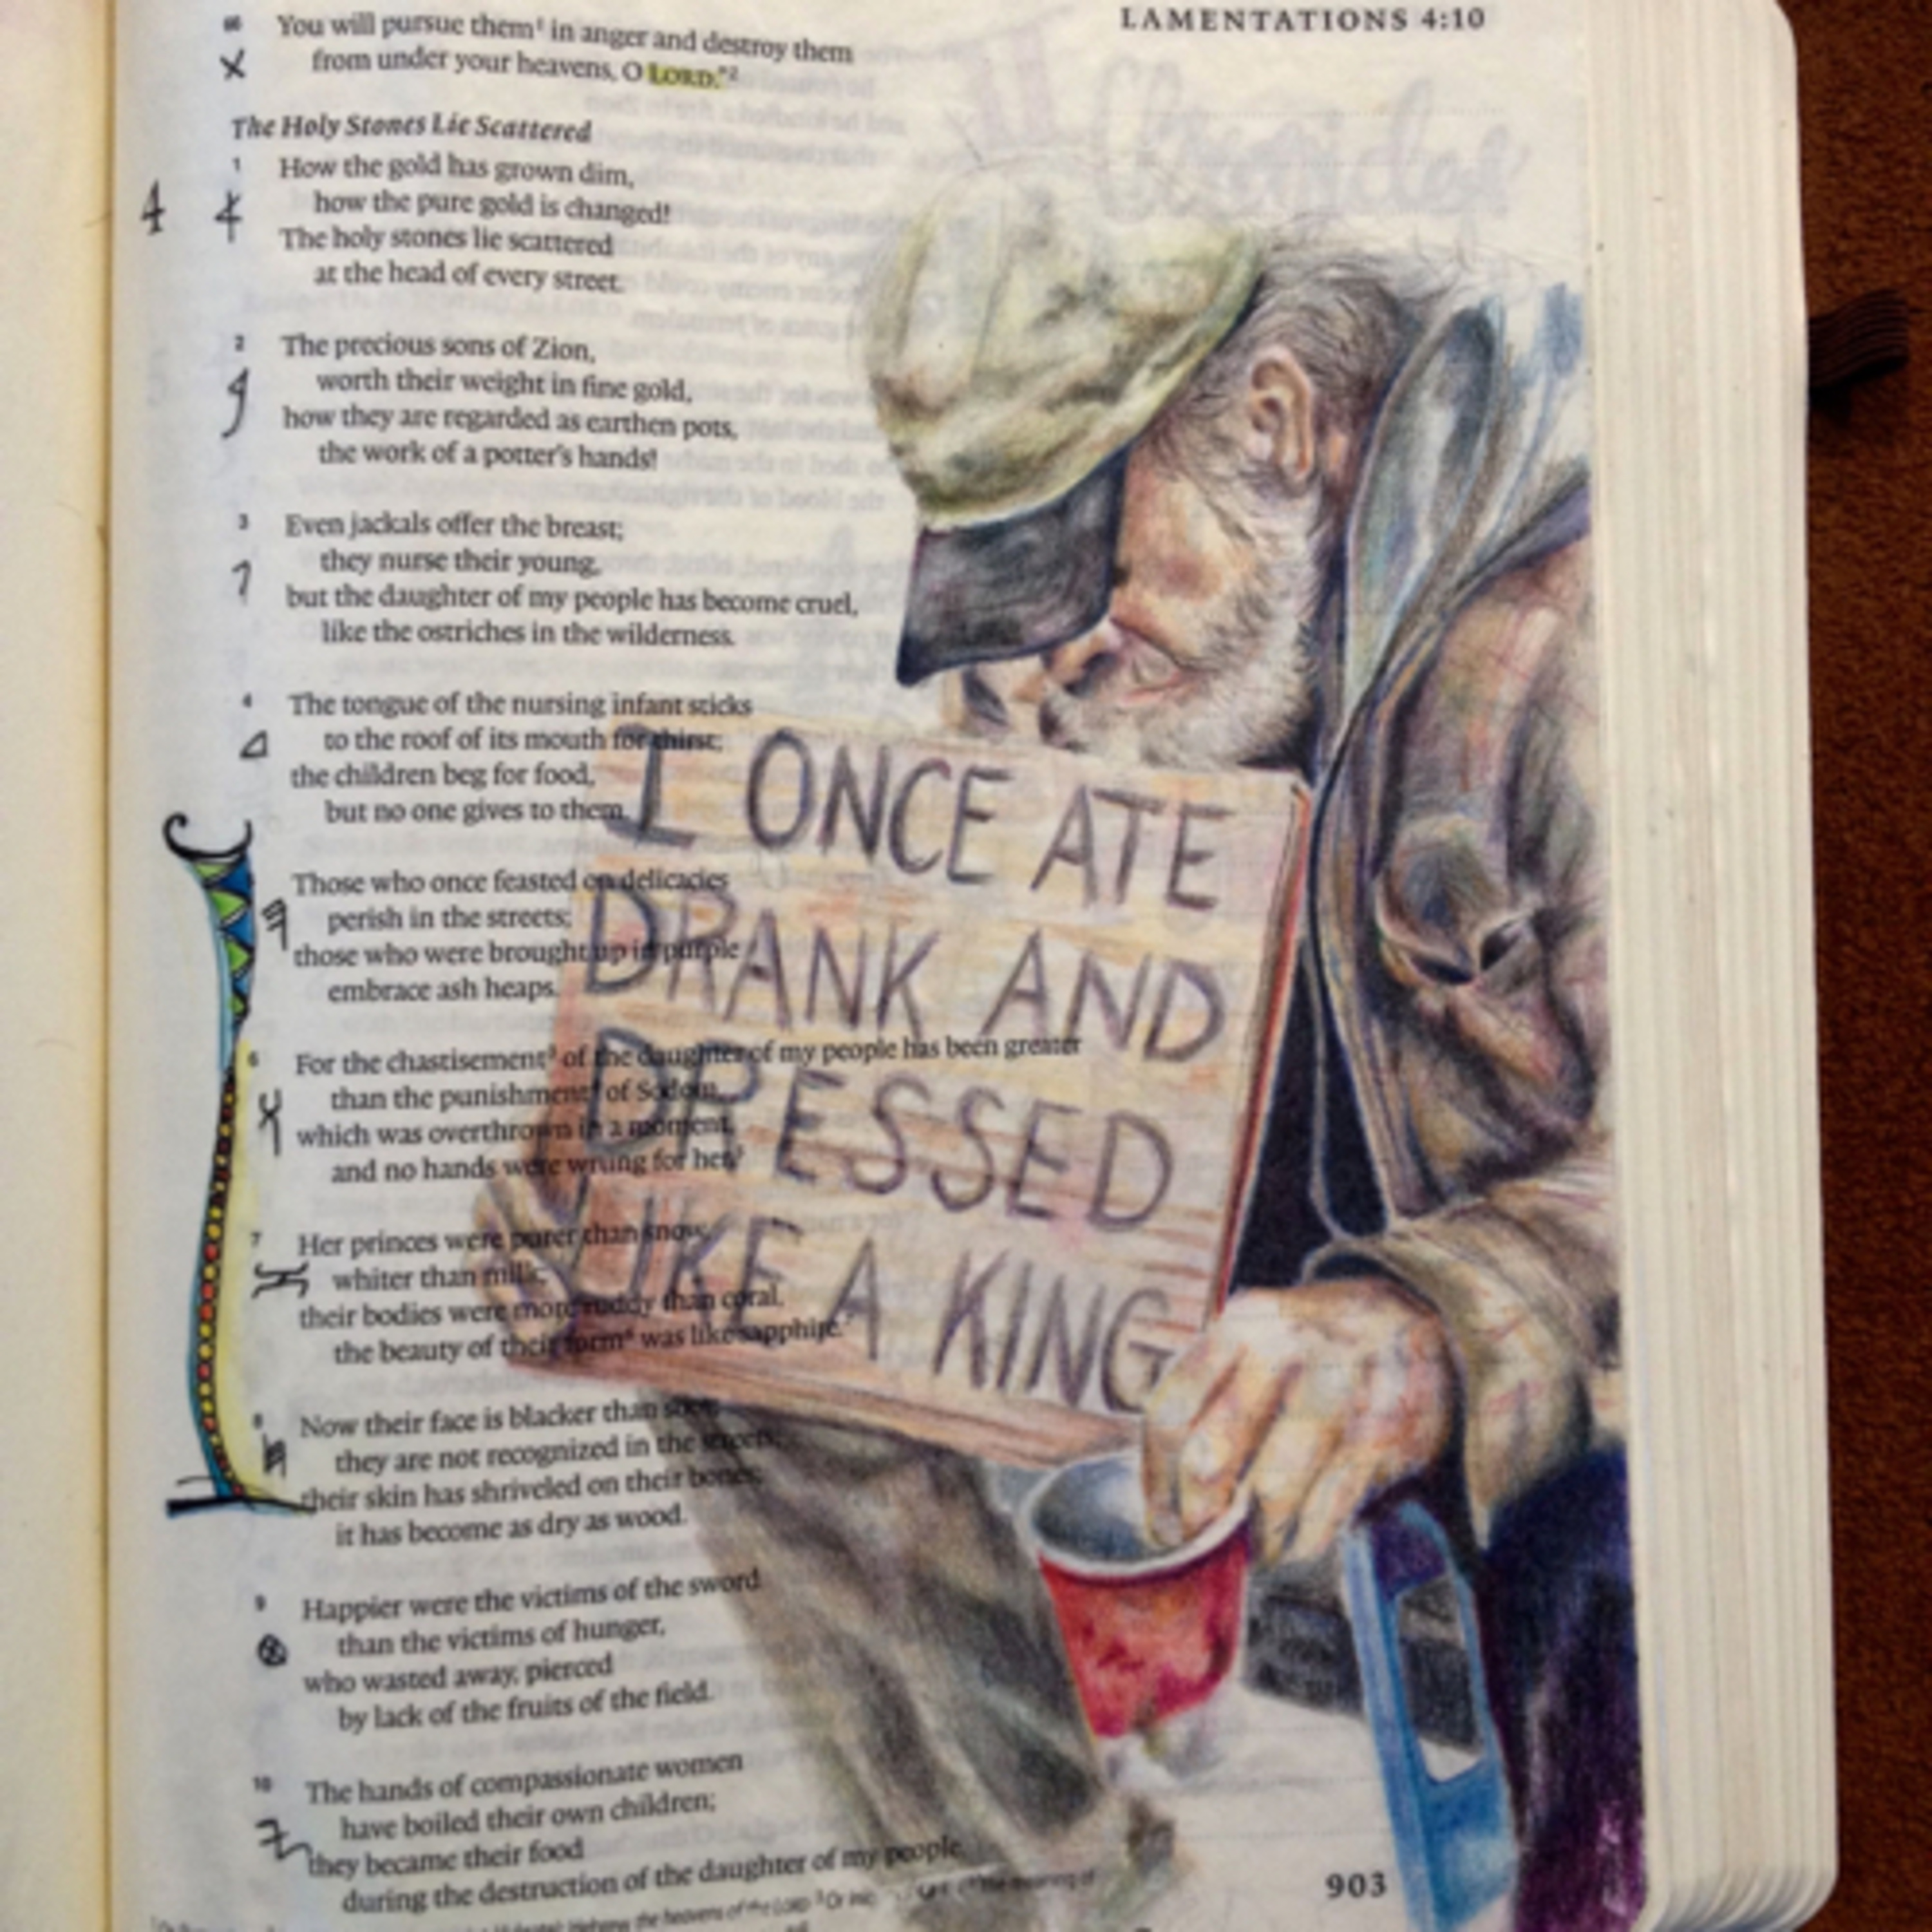 LAMENTATIONS 4:10
66 You will pursue them¹ in anger and destroy them
from under your heavens, O LORD."²
The Holy Stones Lie Scattered
1 How the gold has grown dim,
4 how the pure gold is changed!
The holy stones lie scattered
at the head of every street.
2 The precious sons of Zion,
worth their weight in fine gold,
how they are regarded as earthen pots,
the work of a potter's hands!
3 Even jackals offer the breast;
they nurse their young,
but the daughter of my people has become cruel,
like the ostriches in the wilderness.
4 The tongue of the nursing infant sticks
to the roof of its mouth for thirst;
the children beg for food,
but no one gives to them.
Those who once feasted on delicacies
perish in the streets;
those who were brought up in purple
embrace ash heaps.
6 For the chastisement³ of the daughter of my people has been greater
than the punishment⁴ of Sodom,
which was overthrown in a moment,
and no hands were wrung for her.
7 Her princes were purer than snow,
whiter than milk;
their bodies were more ruddy than coral,
the beauty of their form was like sapphire.
8 Now their face is blacker than soot;
they are not recognized in the streets;
their skin has shriveled on their bones;
it has become as dry as wood.
9 Happier were the victims of the sword
than the victims of hunger,
who wasted away, pierced
by lack of the fruits of the field.
10 The hands of compassionate women
have boiled their own children;
they became their food
during the destruction of the daughter of my people.
the heavens of the LORD ³ Or
903
I ONCE ATE
DRANK AND
DRESSED
LIKE A KING